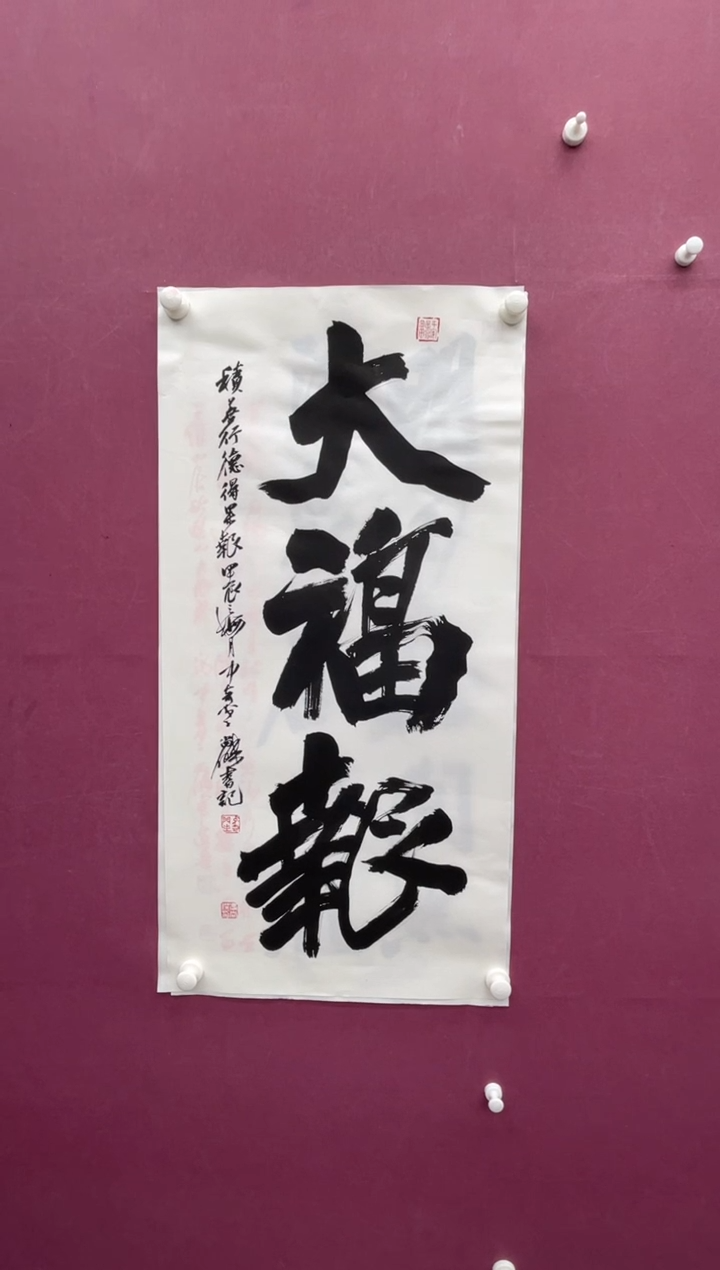 大福報
積善行德得果報甲辰海月中
書記